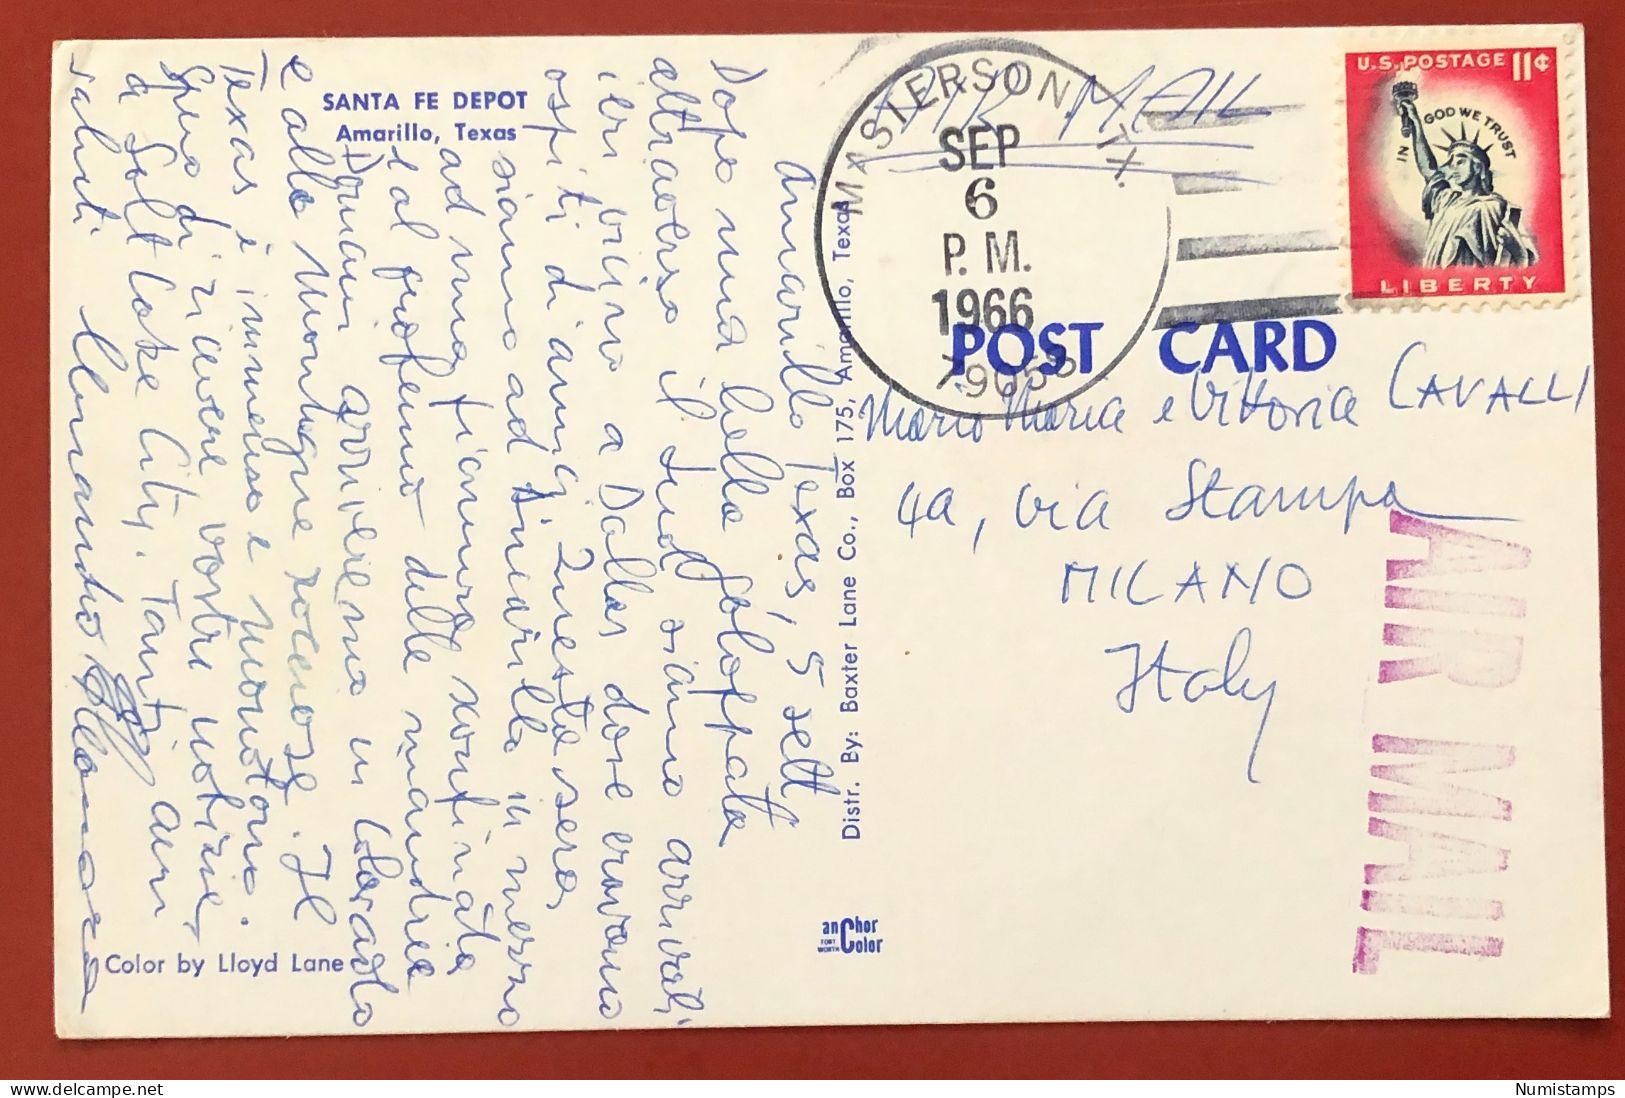 SANTA FE DEPOT
Amarillo, Texas
Amarillo Texas, 5 sett
Dopo una bella galoppata
attraverso il Sud siamo arrivati
ieri vicino a Dallas dove eravamo
ospiti di amici. Questa sera
siamo ad Amarillo in mezzo
ad una pianura sconfinata
e al profumo delle mandrie
Domani arriveremo in Colorado
e alle Montagne rocciose. Il
Texas è immenso e monotono.
Spero di ricevere vostre notizie
a Salt Lake City. Tanti cari
saluti
Color by Lloyd Lane
Distr. By: Baxter Lane Co., Box 175, Amarillo, Texas
anchor Color
FORT WORTH
MASTERSON TX.
SEP
6
P.M.
1966
79058
AIR MAIL
U.S. POSTAGE 11¢
IN GOD WE TRUST
LIBERTY
POST CARD
Mario Maria e Vittoria CAVALLI
4a, via Stampa
MILANO
Italy
AIR MAIL
Numistamps